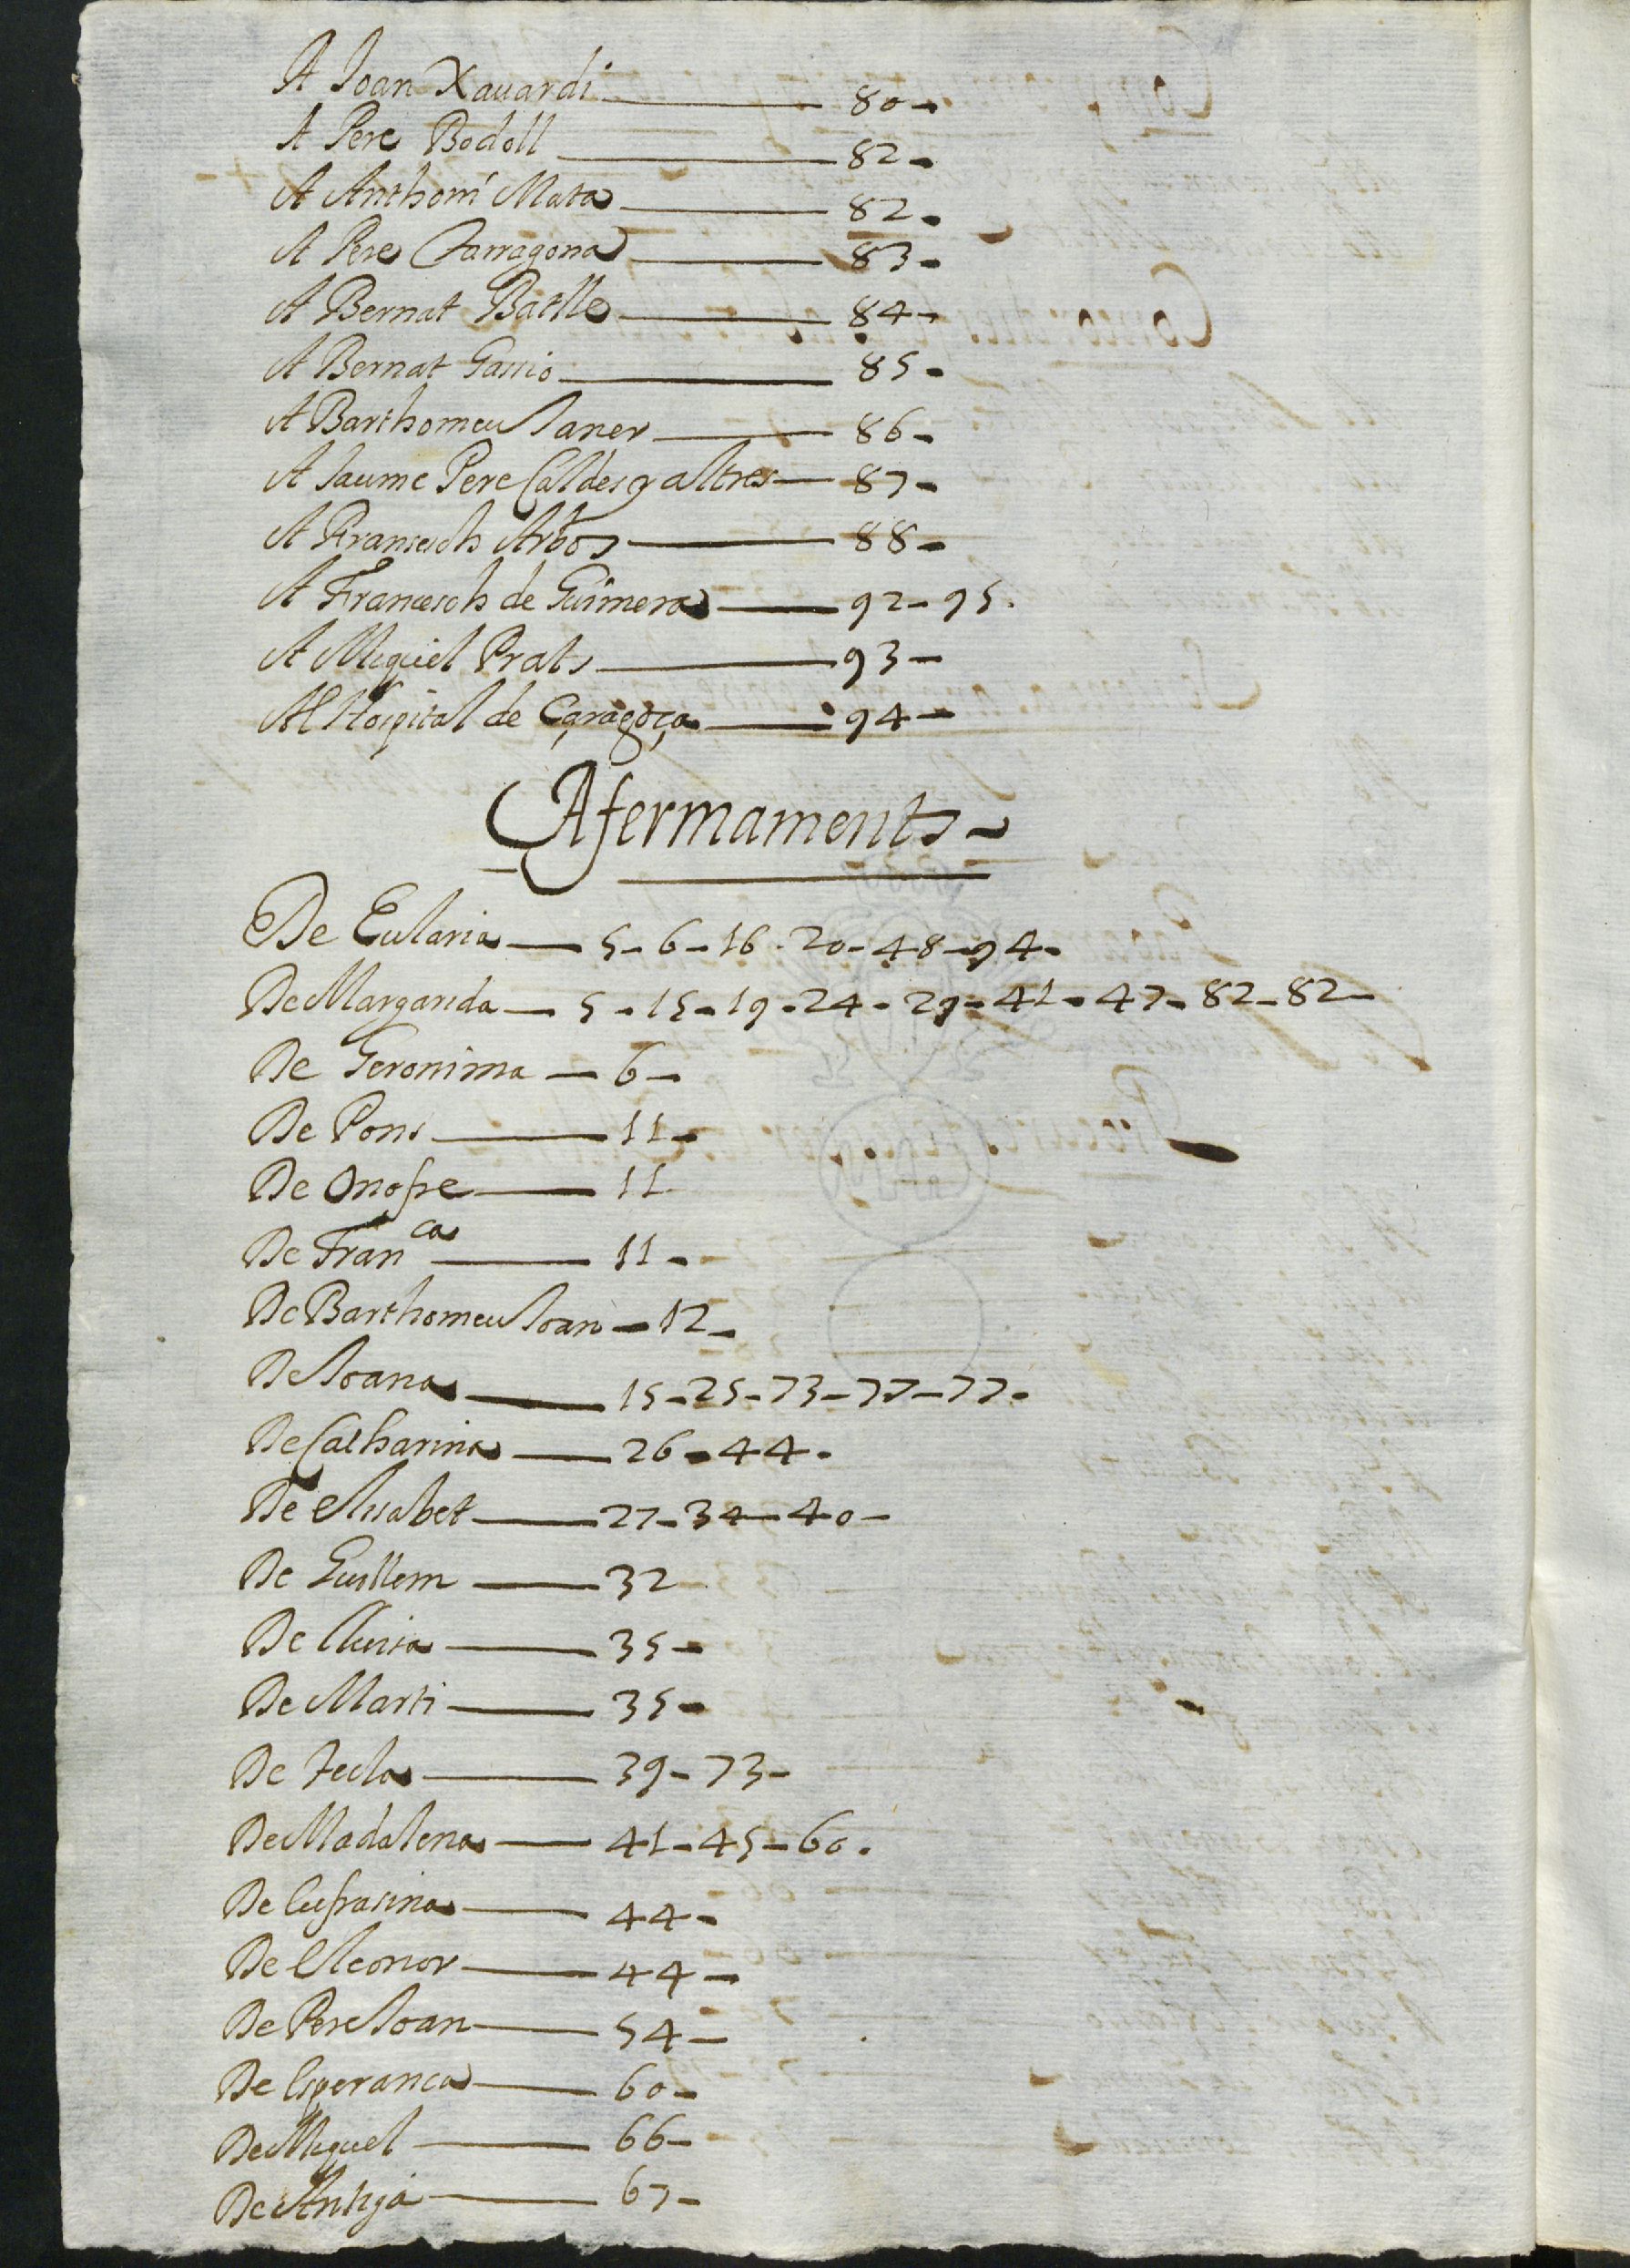 A Joan Xauardi — 80 -
A Pere Bodoll — 82 -
A Anthoni Mata — 82 -
A Pere Tarragona — 83 -
A Bernat Batlle — 84 -
A Bernat Gassio — 85 -
A Barthomeu Janer — 86 -
A Jaume Pere Caldes y altres — 87 -
A Francesch Arbos — 88 -
A Francesch de Guimera — 92 - 95.
A Miquel Prats — 93 -
Al Hospital de Çaragoça — 94 -
Afermaments -
De Eularia — 5 - 6 - 16 - 20 - 48 - 94 -
De Margarida — 5 - 15 - 19 - 24 - 29 - 41 - 47 - 82 - 82 -
De Geronima — 6 -
De Pons — 11 -
De Onofre — 11
De Fran^ca — 11 -
De Barthomeu Joan — 12 -
De Joana — 15 - 25 - 73 - 77 - 77 -
De Catharina — 26 - 44 -
De Elisabet — 27 - 34 - 40 -
De Guillem — 32
De Lluisa — 35 -
De Marti — 35 -
De Tecla — 39 - 73 -
De Madalena — 41 - 45 - 60.
De Eufrasina — 44 -
De Eleonor — 44 -
De Pere Joan — 54 -
De Esperanca — 60 -
De Miquel — 66 -
De Antiga — 67 -